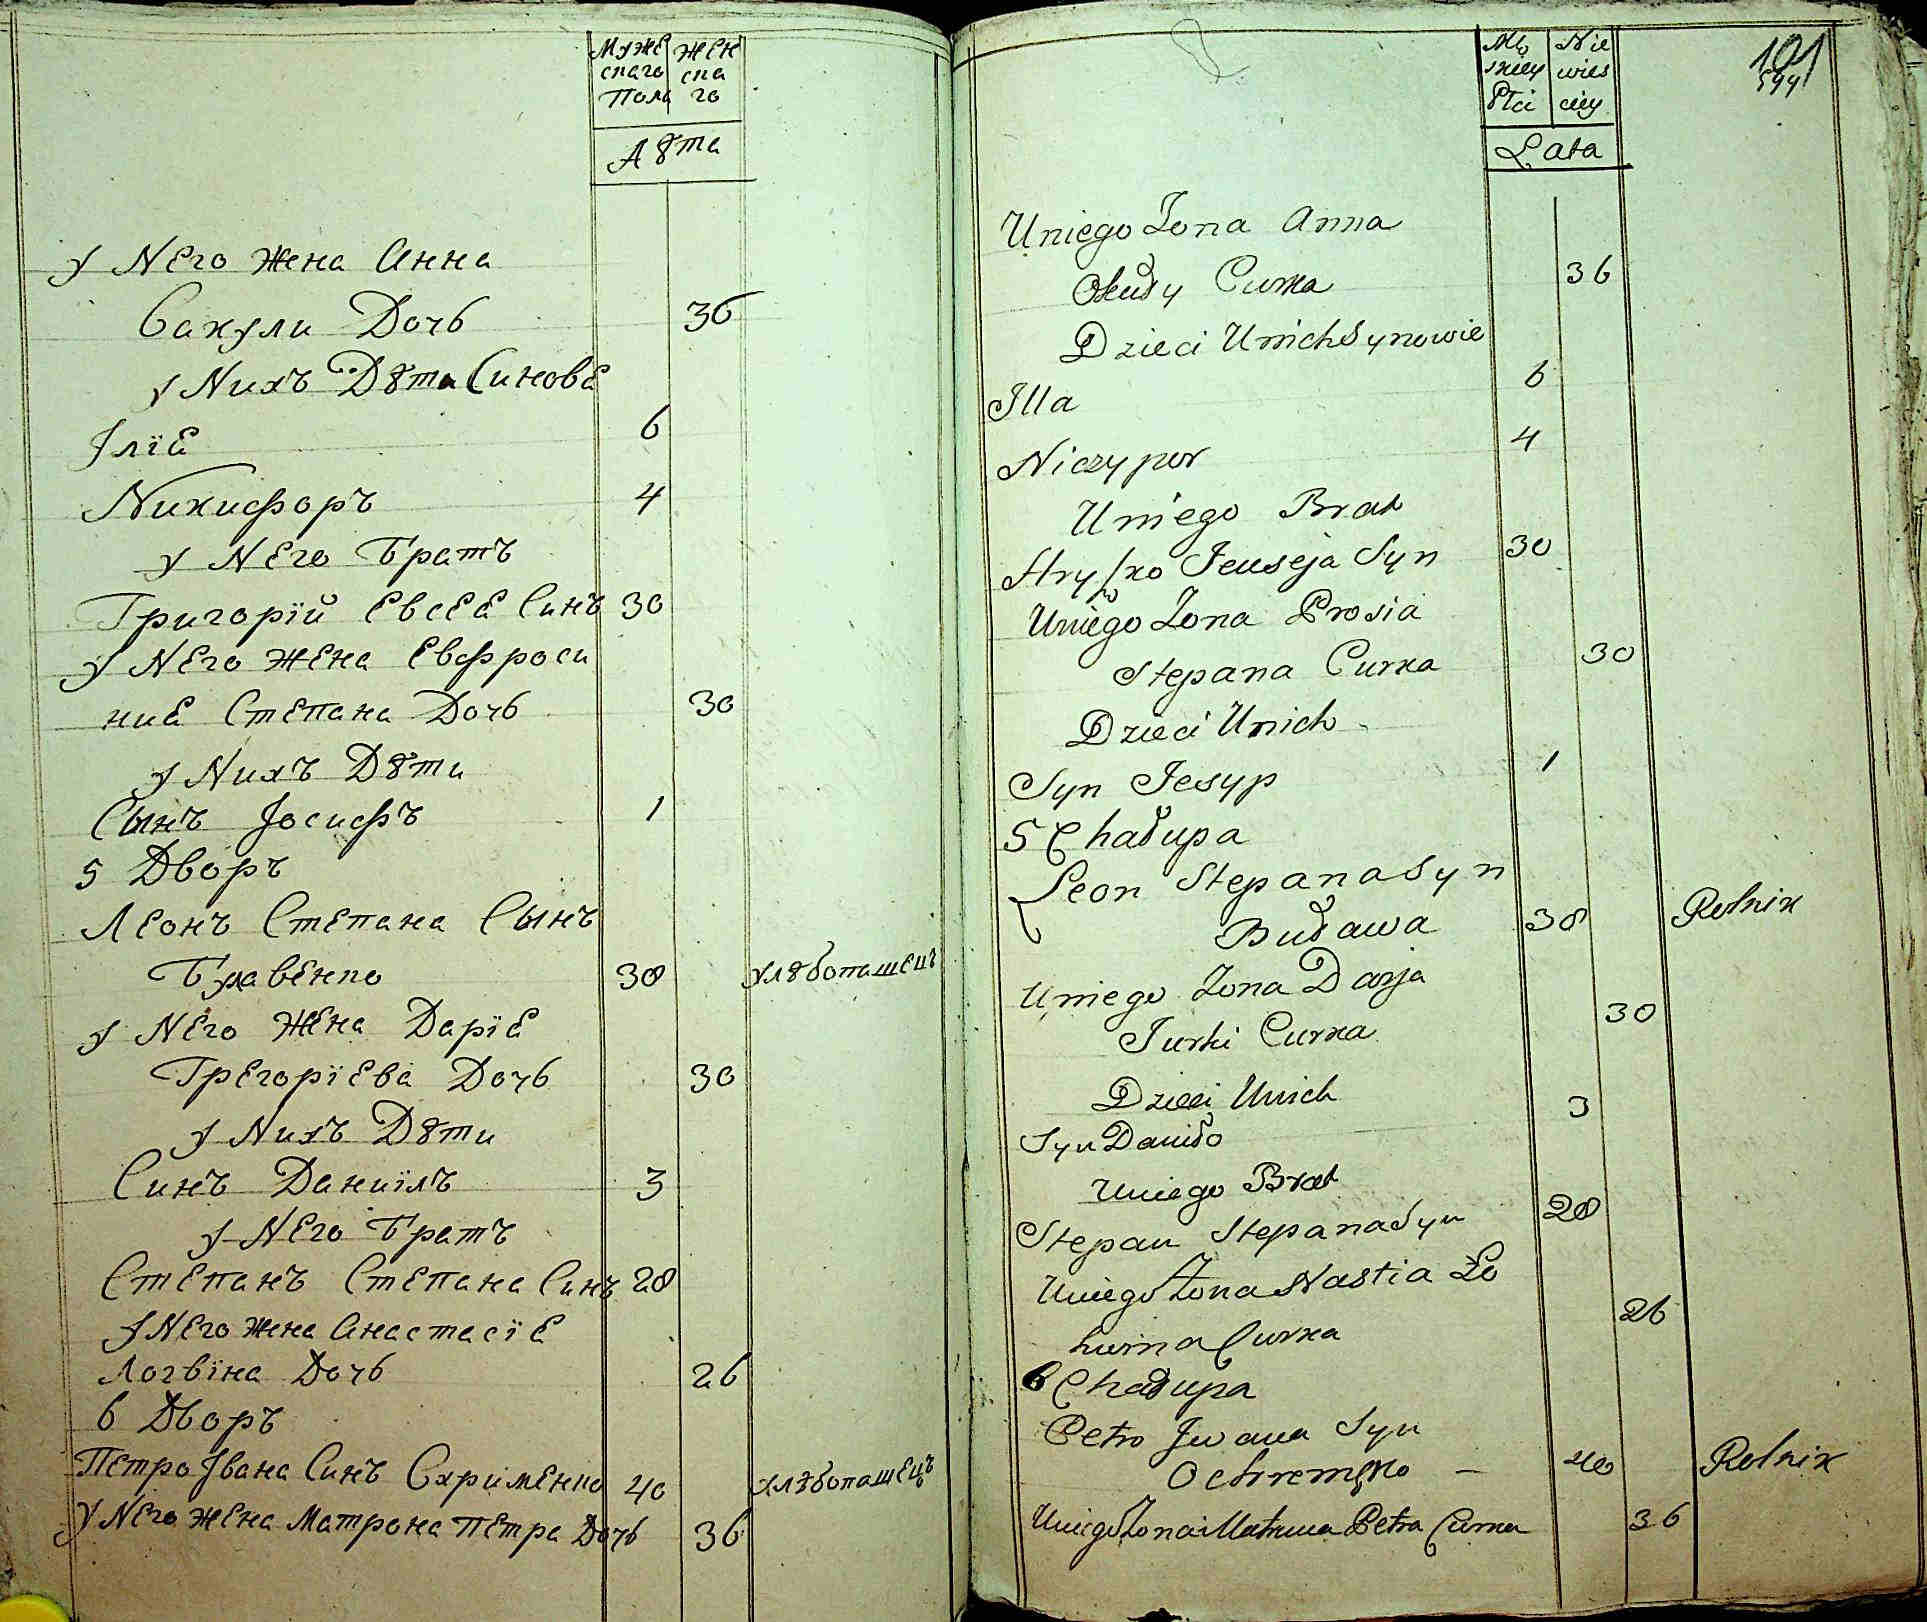 Муже Жен
скаго ска
Пола го
Лѣта
у Него Жена Анна
Вакули Дочь 36
у Нихъ Дѣти Синове
Іліе 6
Никифоръ 4
у Него Братъ
Григорій Евсее Синъ 30
у Него Жена Евфроси
ние Степана Дочь 30
у Нихъ Дѣти
Сынъ Іосифъ 1
5 Дворъ
Леонъ Степана Сынъ
38 хлѣбопашецъ
у Него Жена Даріе
Грегоріева Дочь 30
у Нихъ Дѣти
Синъ Даниілъ 3
у Него Братъ
Степанъ Степана Синъ 28
у Него Жена Анастасіе
Логвіна Дочь 26
6 Дворъ
Петро Івана Синъ Охріменко 40 хлѣбопашецъ
у Него Жена Матрона Петра Дочь 36
Mę Nie
skiey wies
Płci ciey
101
Lata
Uniego Żona Anna
Curka 36
Dzieci Unich Synowie
Illa 6
Niczypor 4
Uniego Brat
Hryćko Jeuseja Syn 30
Uniego Żona Prosia
Stepana Curka 30
Dzieci Unich
Syn Jesyp 1
5 Chałupa
Leon Stepana Syn
38 Rolnik
Uniego Żona Darja
Jurki Curka 30
Dzieci Unich
Syn Daniło 3
Uniego Brat
Stepan Stepana Syn 28
Uniego Żona Nastia Ło
hwina Curka 26
6 Chałupa
Petro Jwana Syn
Ochremęko — 40 Rolnik
Uniego Żona Matruna Petra Curka 36